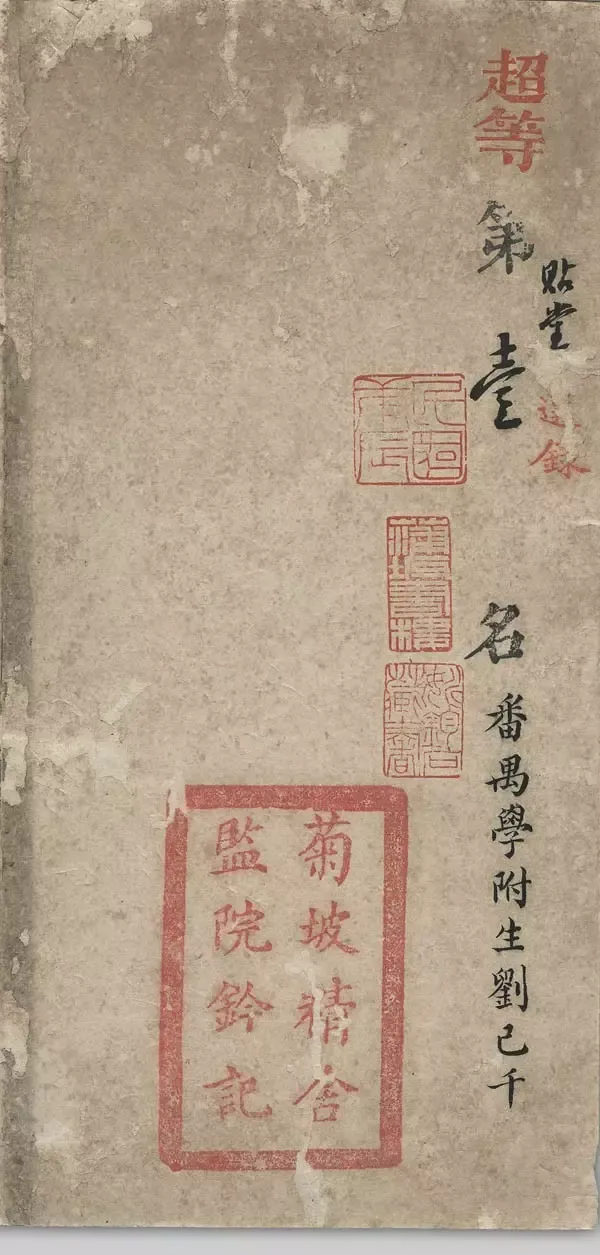 超等
第壹名
貼堂
選錄
番禺學附生劉已千
菊坡精舍
監院鈐記